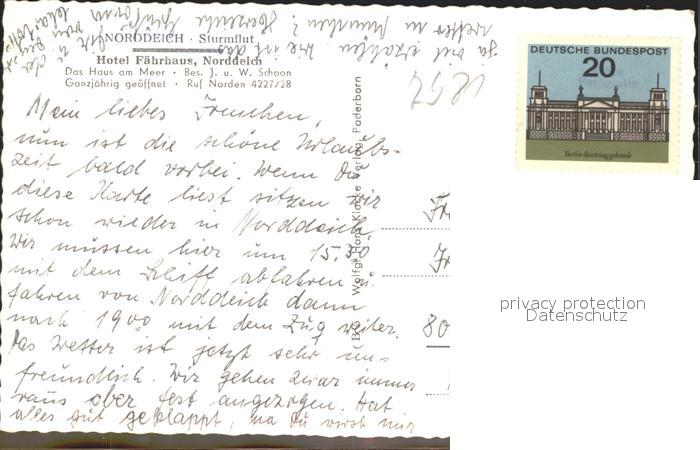 NORDDEICH · Sturmflut
Hotel Fährhaus, Norddeich
Das Haus am Meer · Bes. J. u. W. Schoon
Ganzjährig geöffnet · Ruf Norden 4227/28
Mein liebes
nun ist die schöne Urlaubs-
zeit bald vorbei. Wenn Du
diese Karte liest sitzen wir
schon wieder in Norddeich,
wir müssen hier um 15.30
mit dem Schiff abfahren u.
fahren von Norddeich dann
nach 19.00 mit dem Zug weiter.
Das Wetter ist jetzt sehr un-
freundlich. Wir gehen zwar immer
raus aber fest angezogen. Hat
alles gut geklappt, na Du wirst mir
ja viel erzählen. Wie ist das
Wetter in München? Herzliche
DEUTSCHE BUNDESPOST
20
Berlin-Reichstagsgebäude
Verlag, Paderborn
Fr
80
privacy protection
Datenschutz